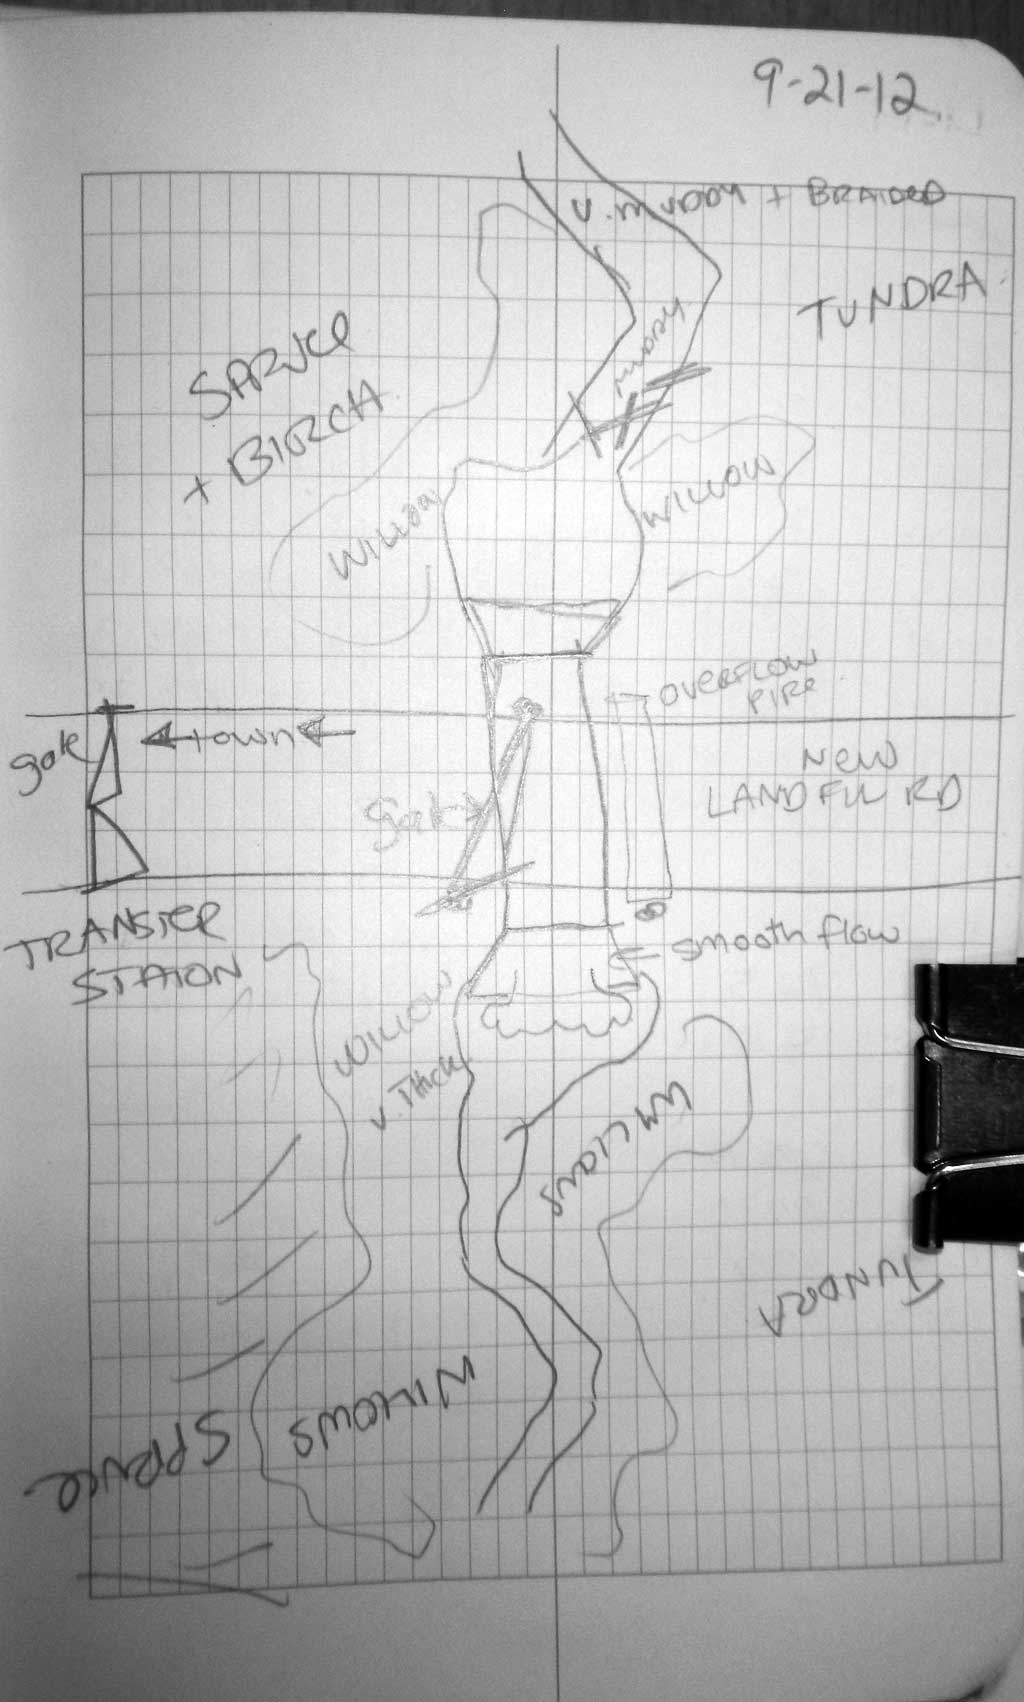 9-21-12
V. MUDDY + BRAIDED
TUNDRA
MUDDY
SPRUCE
+ BIRCH
WILLOW
WILLOW
OVERFLOW
PIPE
gate
←town←
NEW
LANDFILL RD
gate
TRANSFER
STATION
smooth flow
WILLOW
V. Thick
WILLOWS
TUNDRA
WILLOWS
SPRUCE